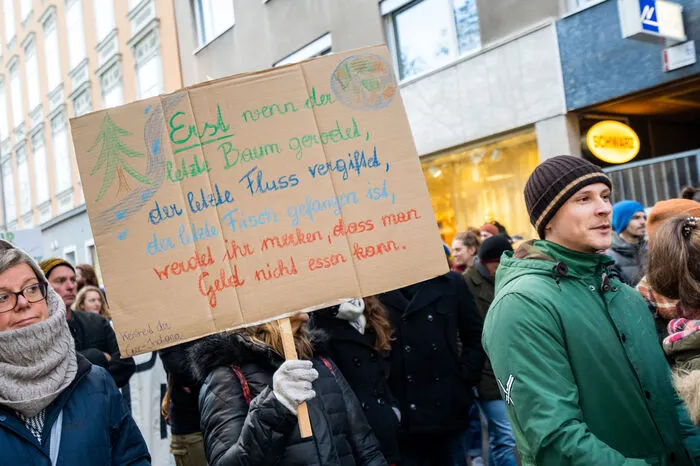 Erst wenn der
letzte Baum gerodet,
der letzte Fluss vergiftet,
der letzte Fisch gefangen ist,
werdet ihr merken, dass man
Geld nicht essen kann.
Weisheit der
Cree-Indianer
SCHWARZ